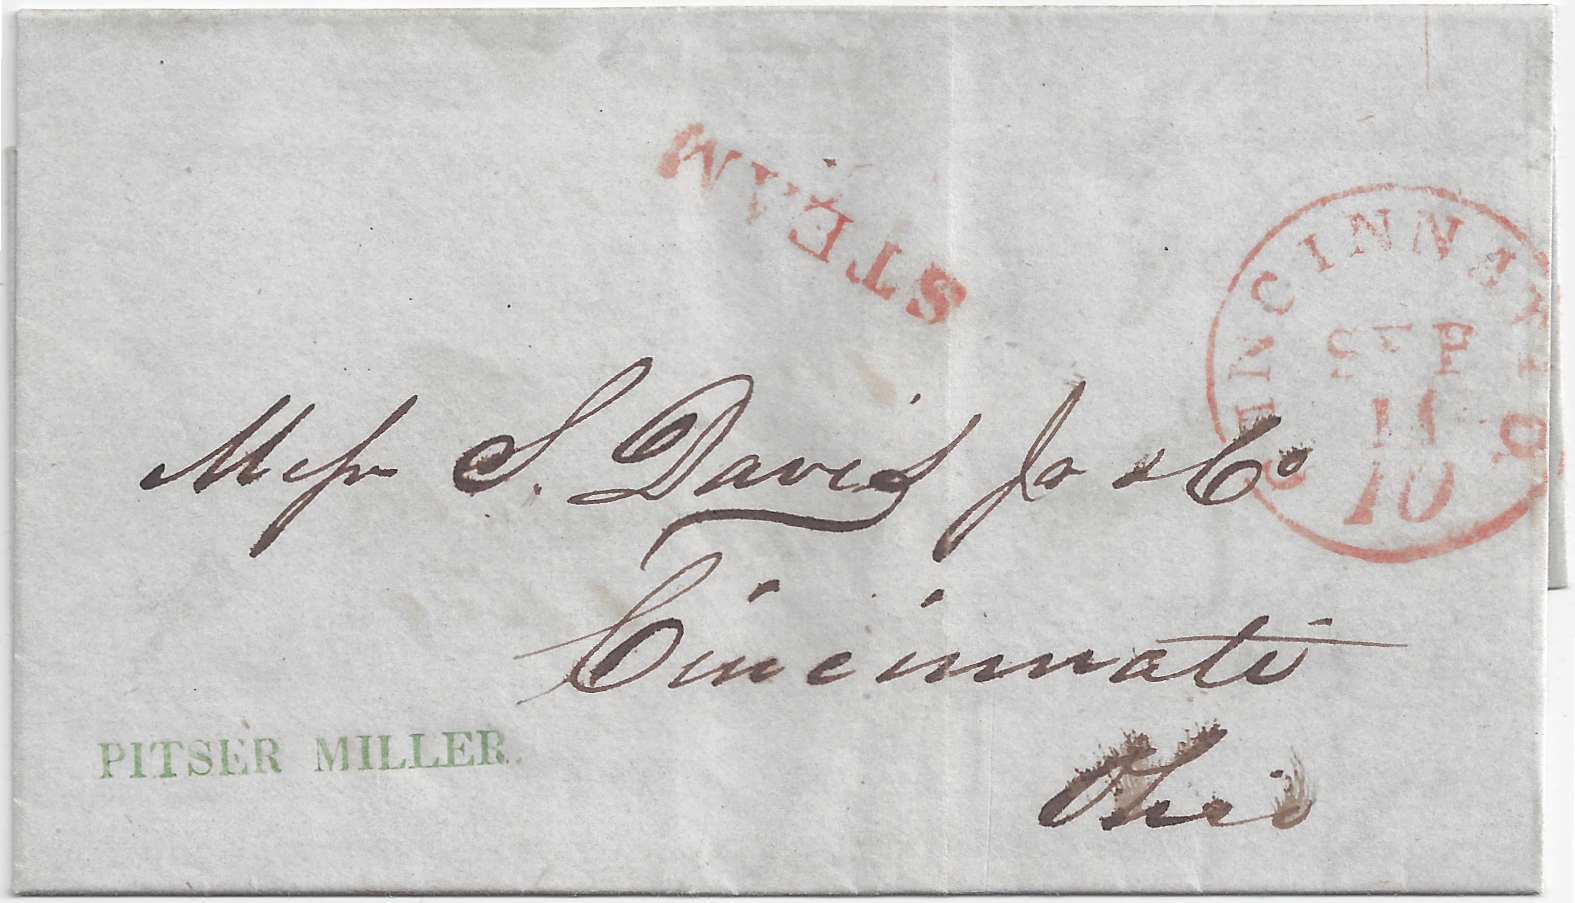 STEAM
CINCINNATI O.
SEP
10
Mess S. Davis Jr & Co
Cincinnati
Ohio
PITSER MILLER.